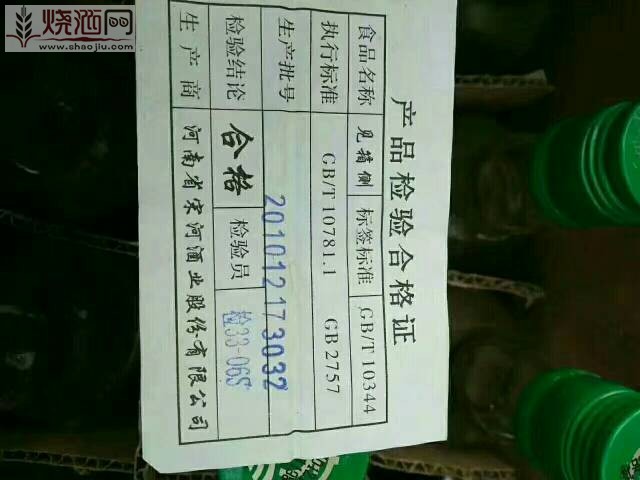 烧酒网
www.shaojiu.com
产品检验合格证
食品名称 见箱侧 标签标准 GB/T10344
执行标准 GB/T10781.1 GB2757
生产批号 20101217 3032
检验结论 合格 检验员 检33-06S
生产商 河南省宋河酒业股份有限公司